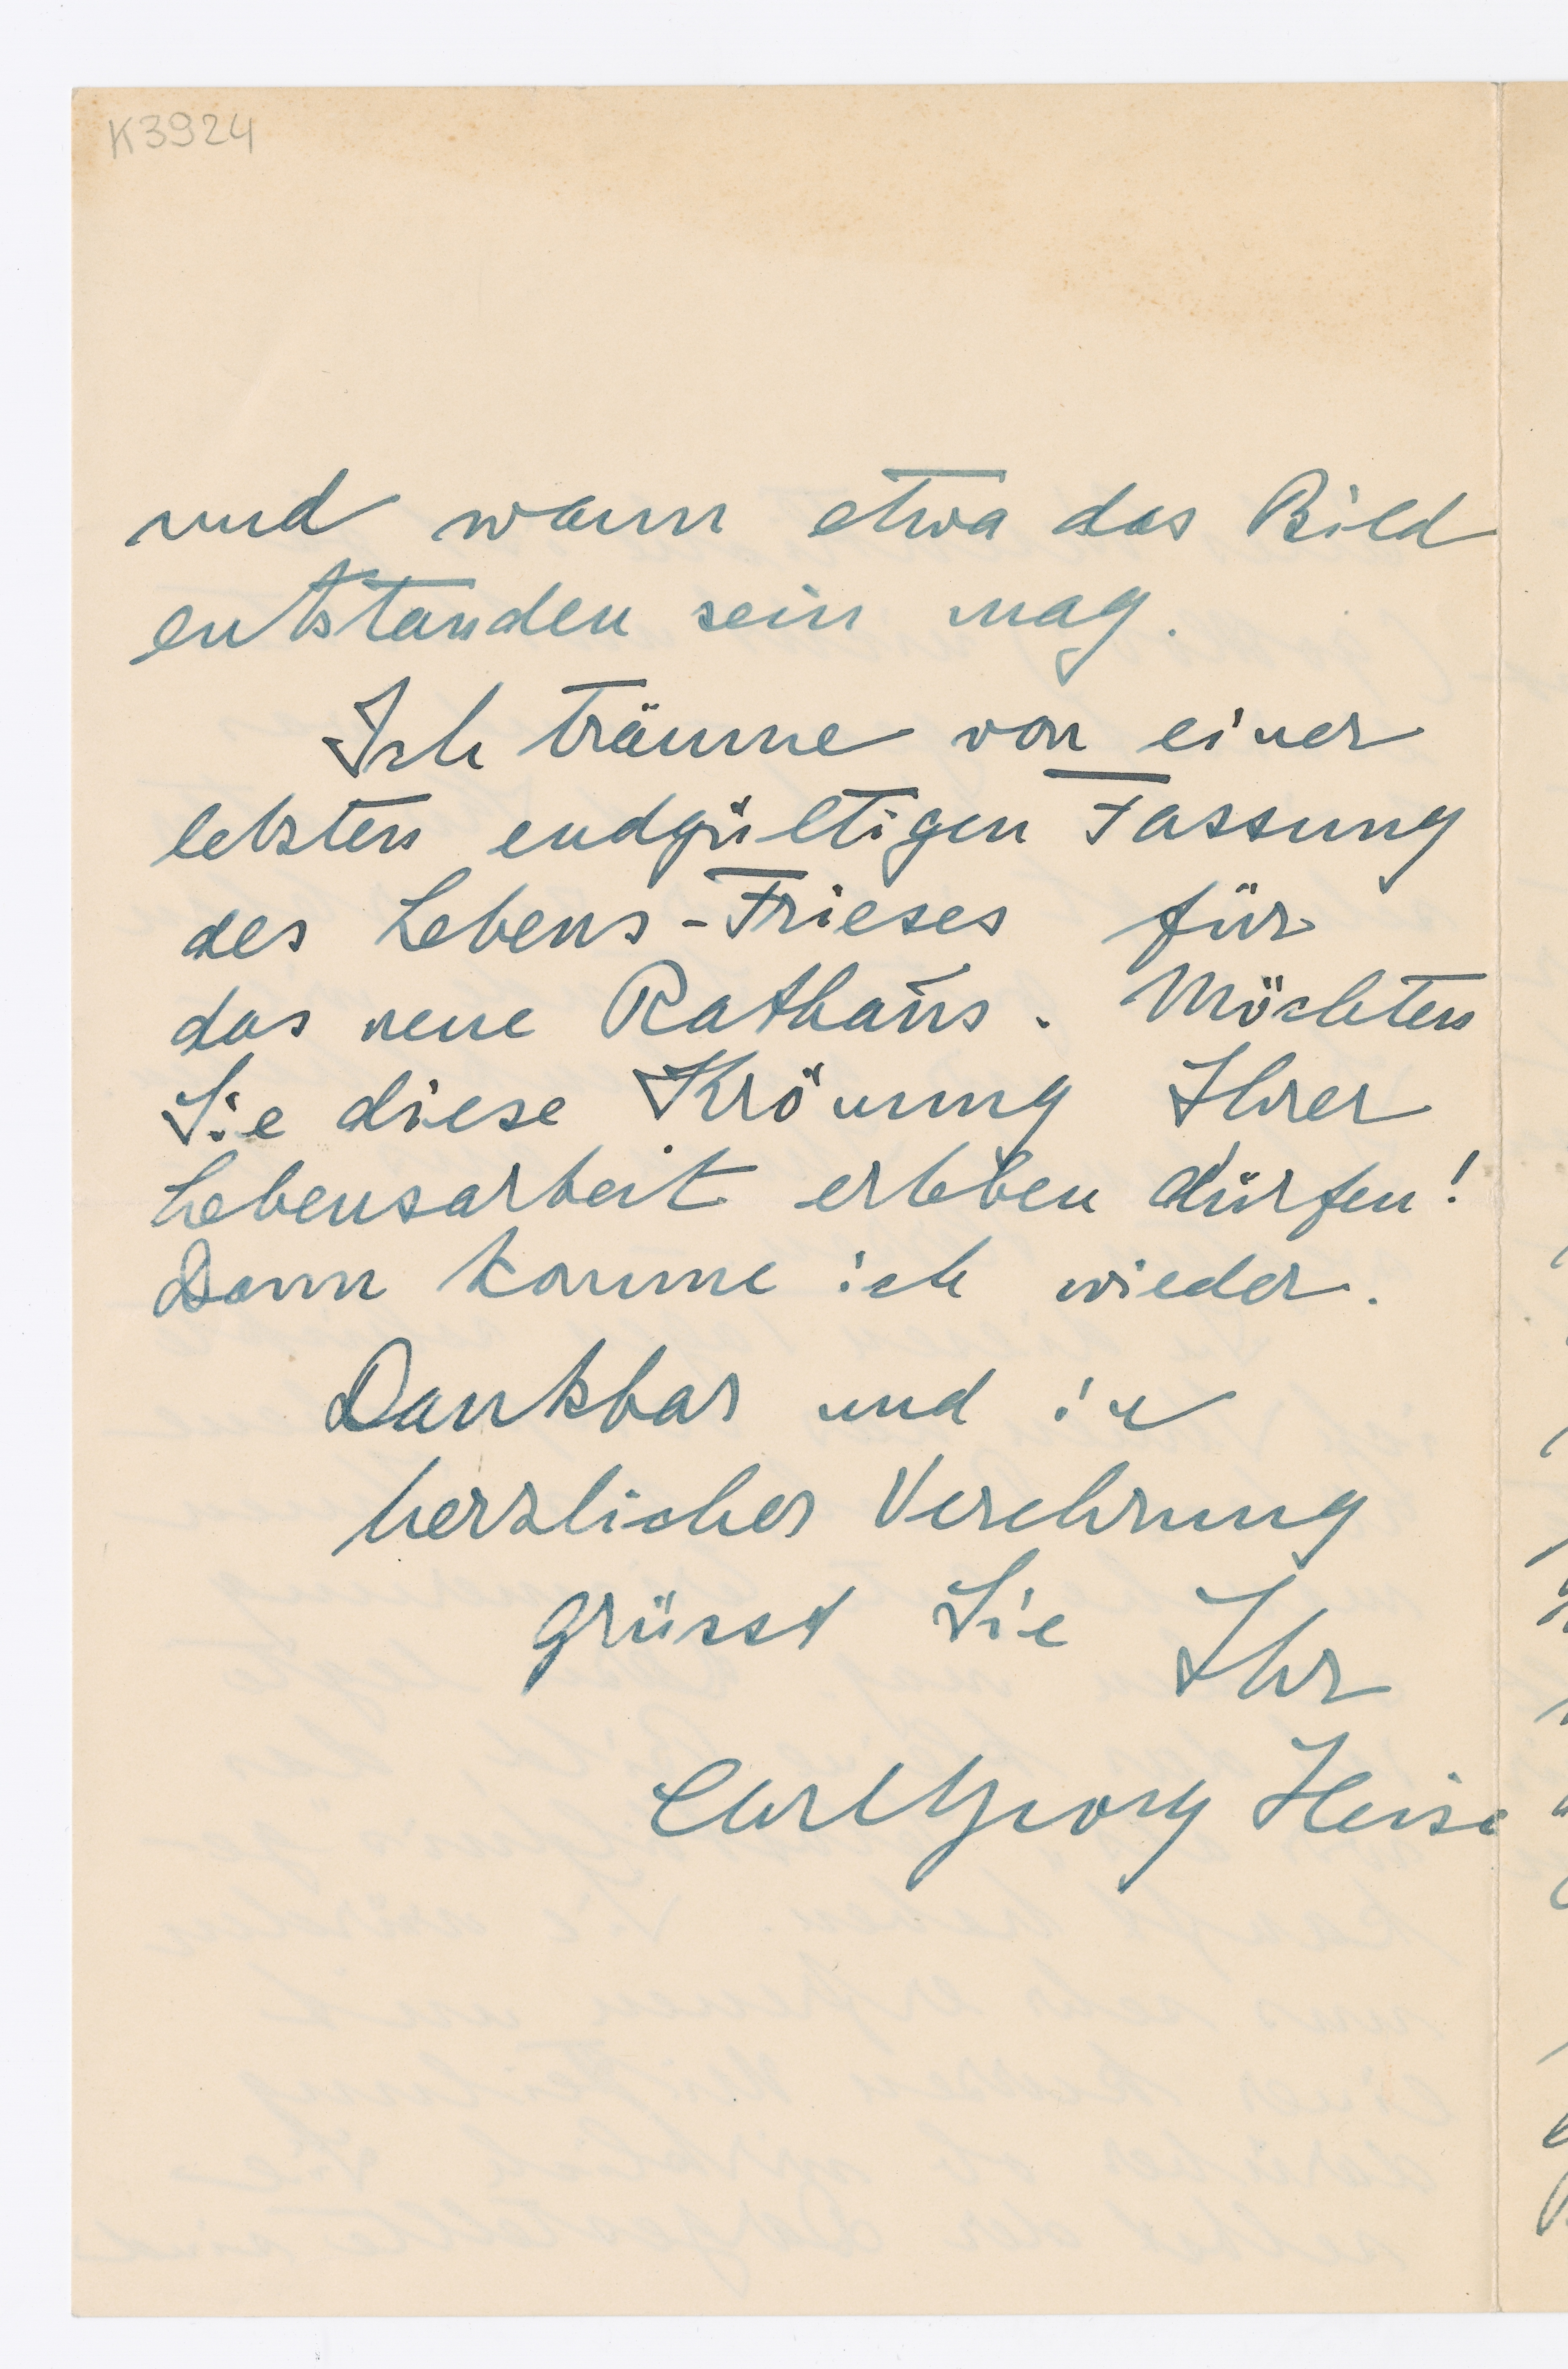 K3924
und wann etwa das Bild
entstanden sein mag.
Ich träume von einer
letzten endgültigen Fassung
des Lebens-Frieses für
das neue Rathaus. Möchten
Sie diese Krönung Ihrer
Lebensarbeit erleben dürfen!
Dann komme ich wieder.
Dankbar und in
herzlicher Verehrung
grüsst Sie Ihr
Carl Georg Heise